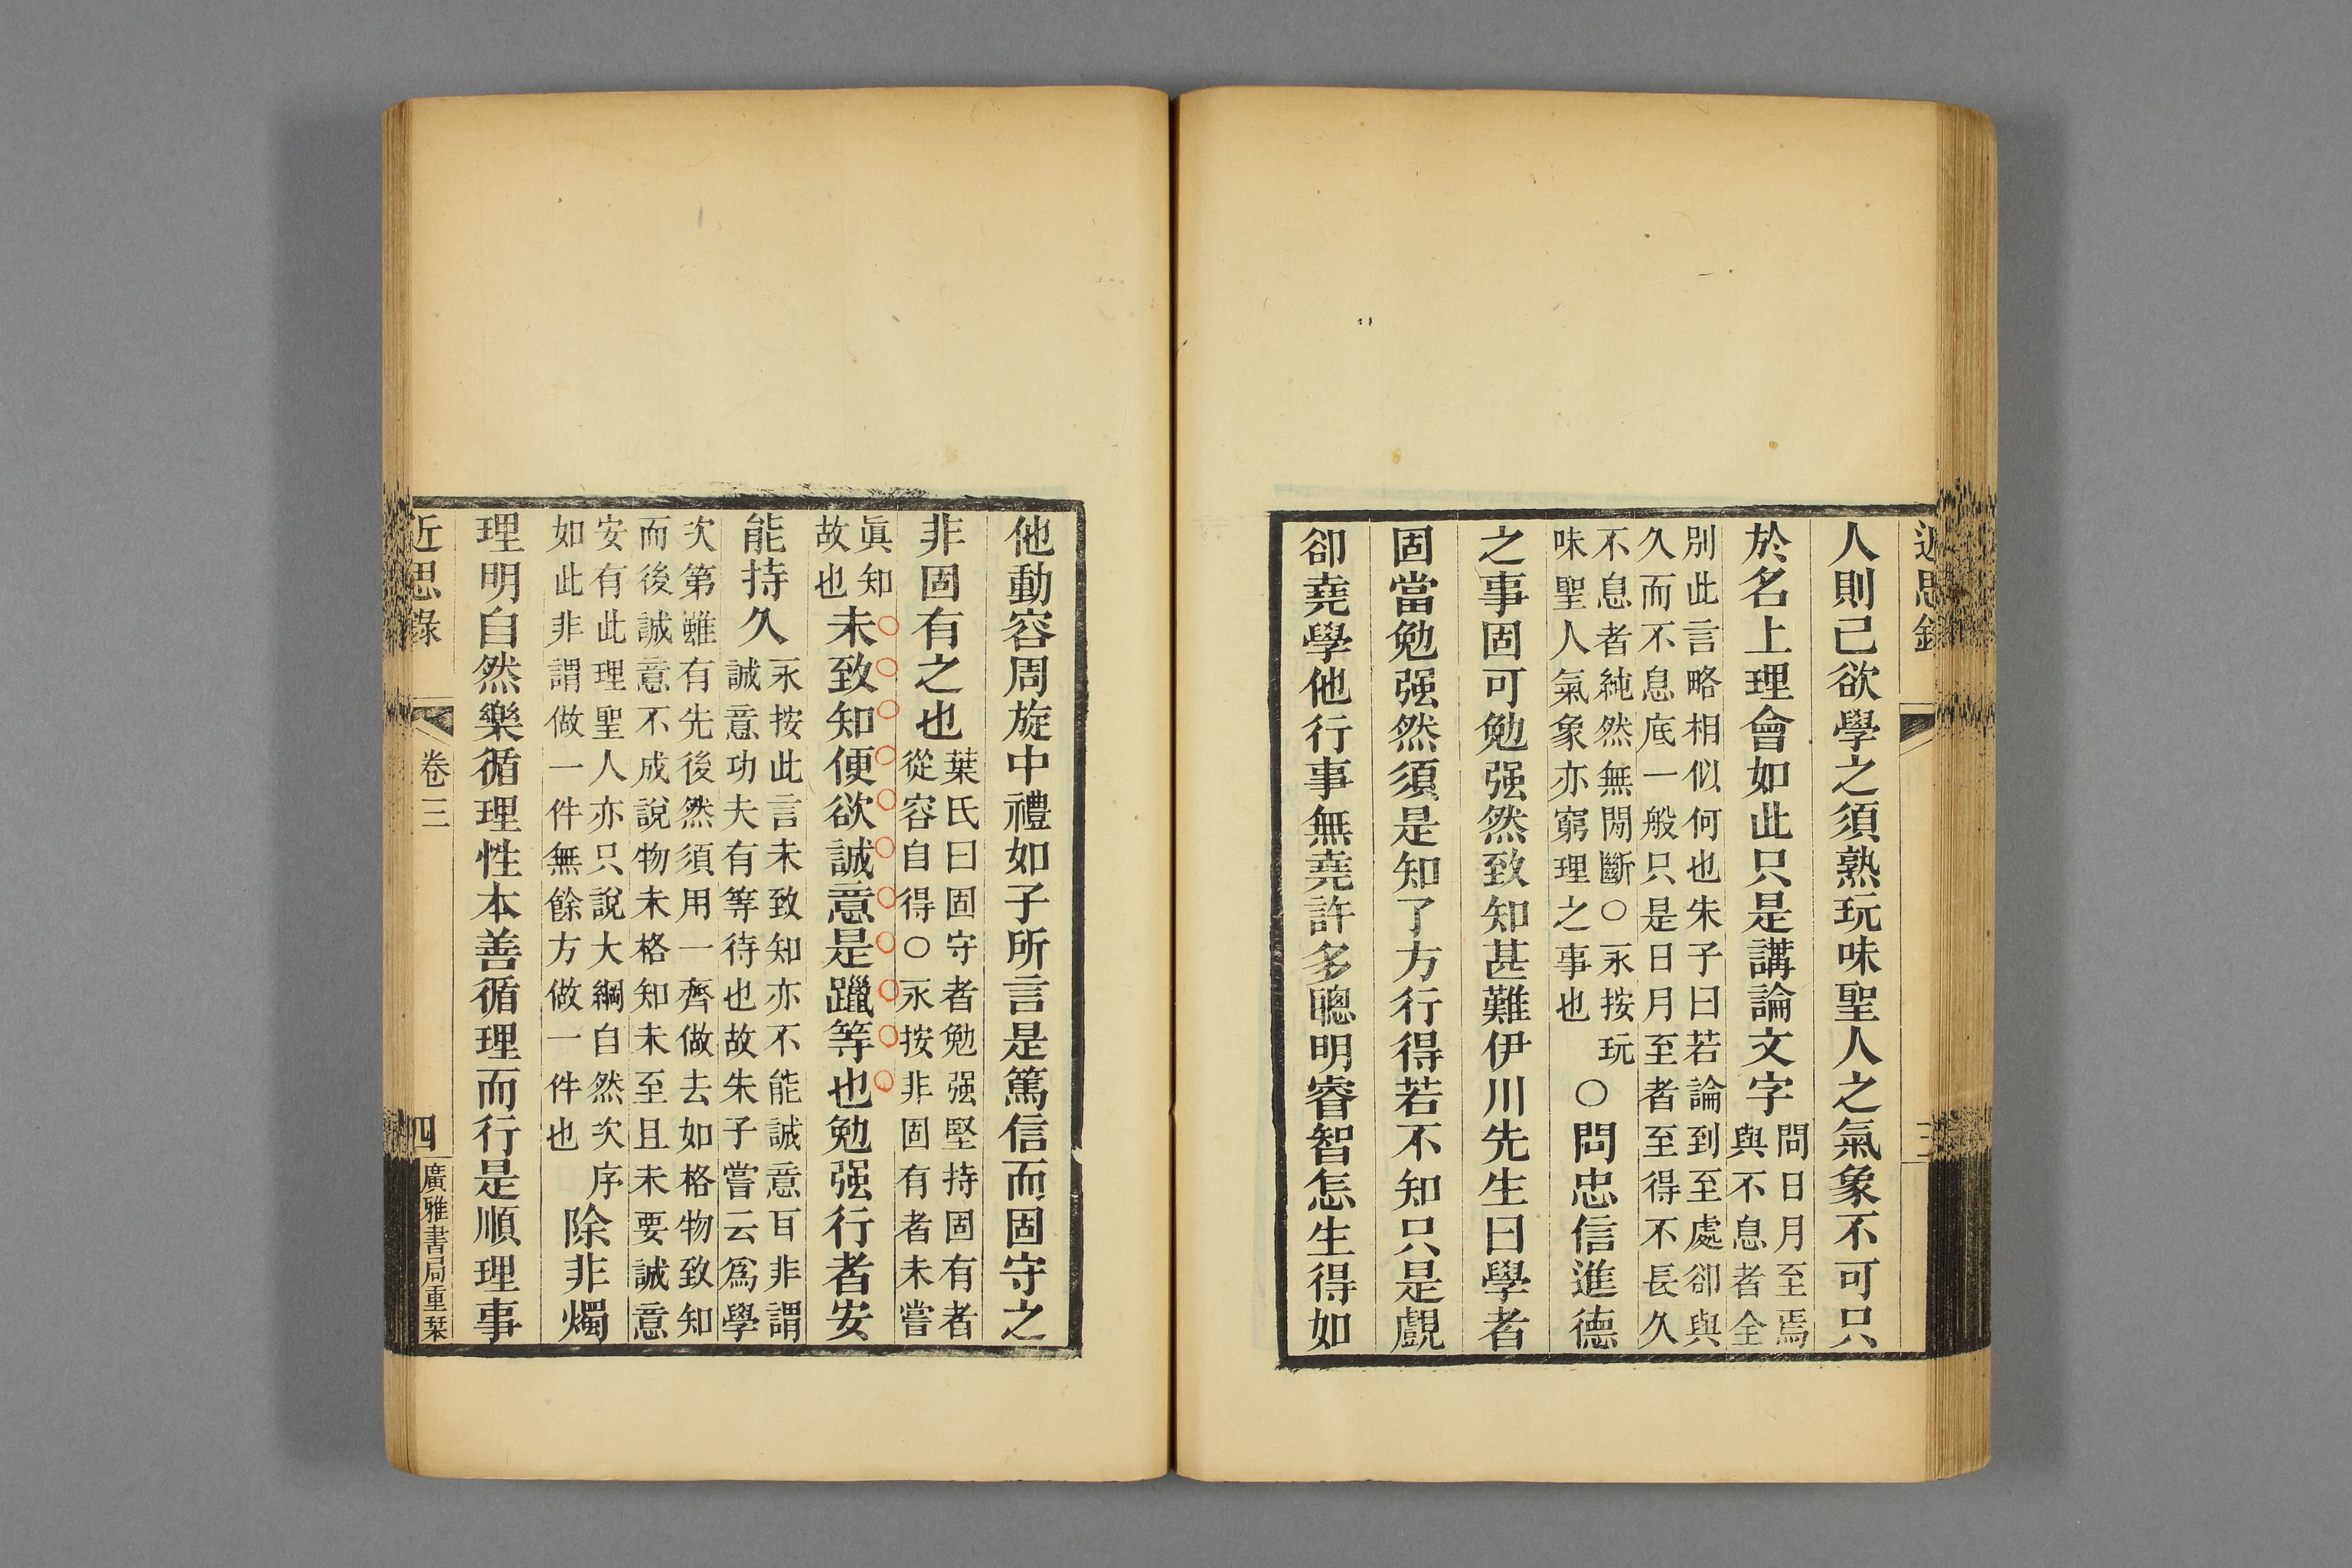 近思錄
三
人則已欲學之須熟玩味聖人之氣象不可只
於名上理會如此只是講論文字
問日月至焉
與不息者全
別此言略相似何也朱子曰若論到至處卻與
久而不息底一般只是日月至者至得不長久
不息者純然無閒斷○永按玩
味聖人氣象亦窮理之事也
○問忠信進德
之事固可勉强然致知甚難伊川先生曰學者
固當勉强然須是知了方行得若不知只是覷
卻堯學他行事無堯許多聰明睿智怎生得如
他動容周旋中禮如子所言是篤信而固守之
非固有之也
葉氏曰固守者勉强堅持固有者
從容自得○永按非固有者未嘗
眞知
故也
未致知便欲誠意是躐等也勉强行者安
能持久
永按此言未致知亦不能誠意耳非謂
誠意功夫有等待也故朱子嘗云爲學
次第雖有先後然須用一齊做去如格物致知
而後誠意不成說物未格知未至且未要誠意
安有此理聖人亦只說大綱自然次序
如此非謂做一件無餘方做一件也
除非燭
理明自然樂循理性本善循理而行是順理事
近思錄
卷三
四
廣雅書局重栞